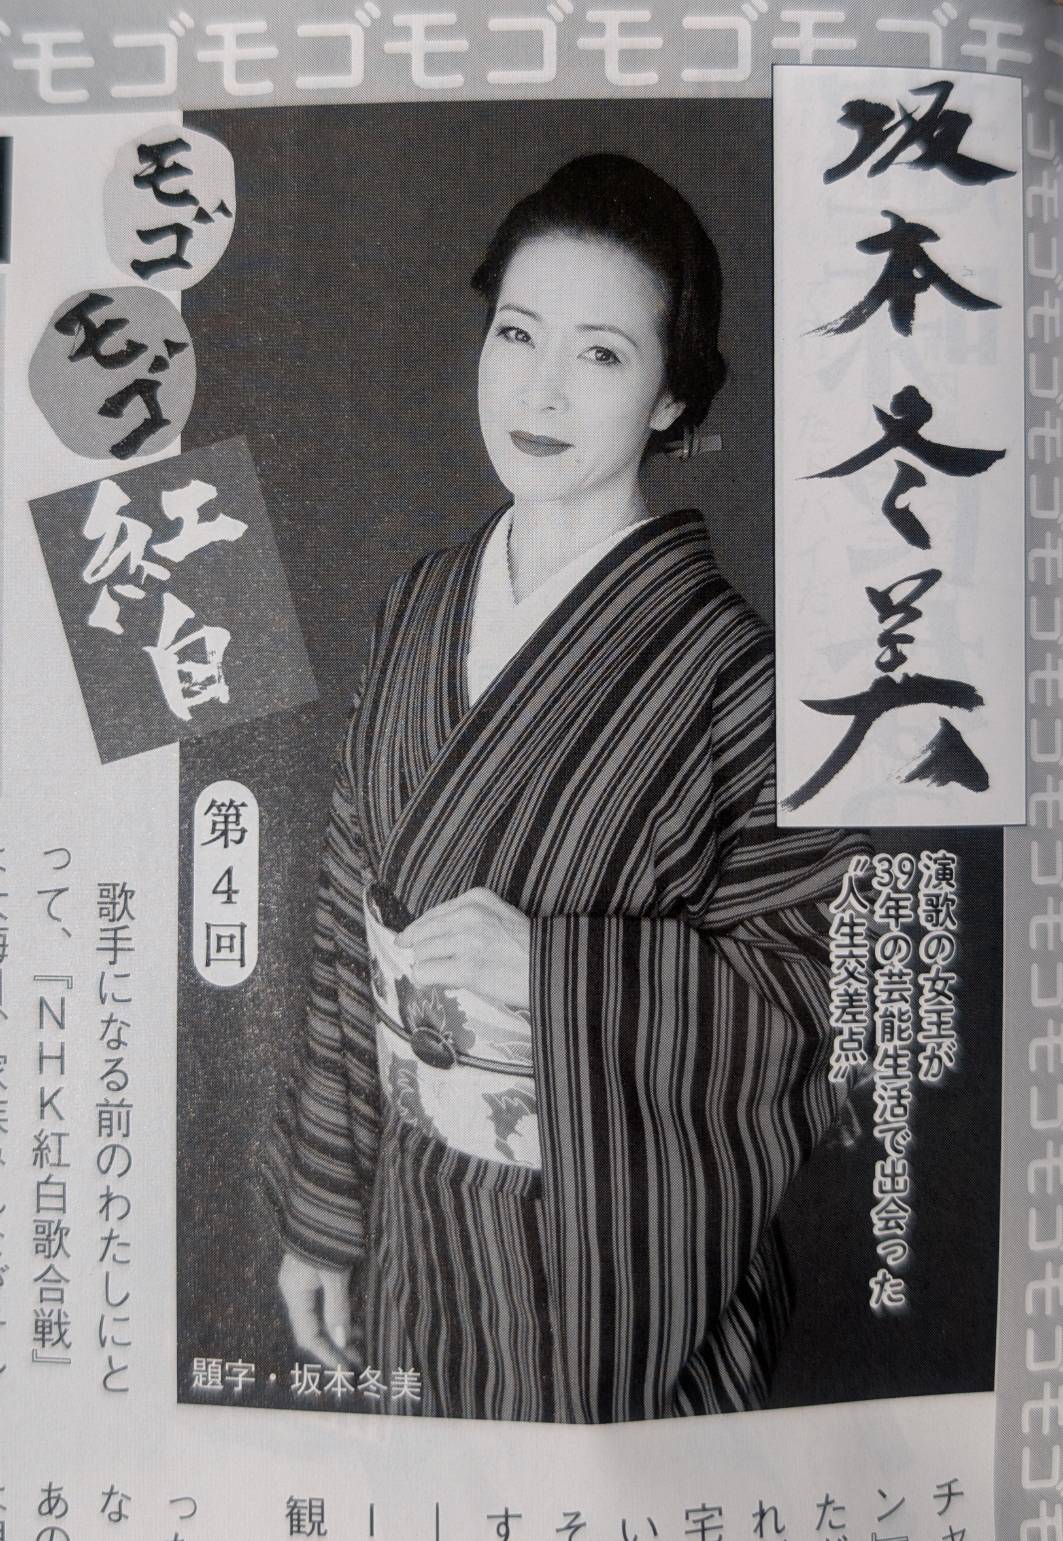 モゴモゴモゴモゴモゴモ
坂本冬美
演歌の女王が
39年の芸能生活で出会った
“人生交差点”
モゴ
モゴ
紅白
第4回
題字・坂本冬美
歌手になる前のわたしにと
って、『NHK紅白歌合戦』
チャ
ン『
た
れ
宅
い
そ
す
｜
ー
観
っ
な
あの